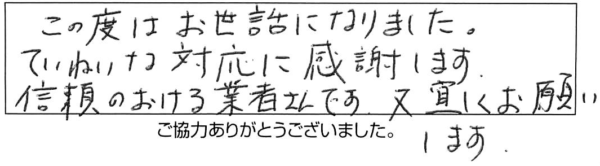 この度はお世話になりました。
ていねいな対応に感謝します.
信頼のおける業者さんです. 又宜しくお願い
します.
ご協力ありがとうございました。